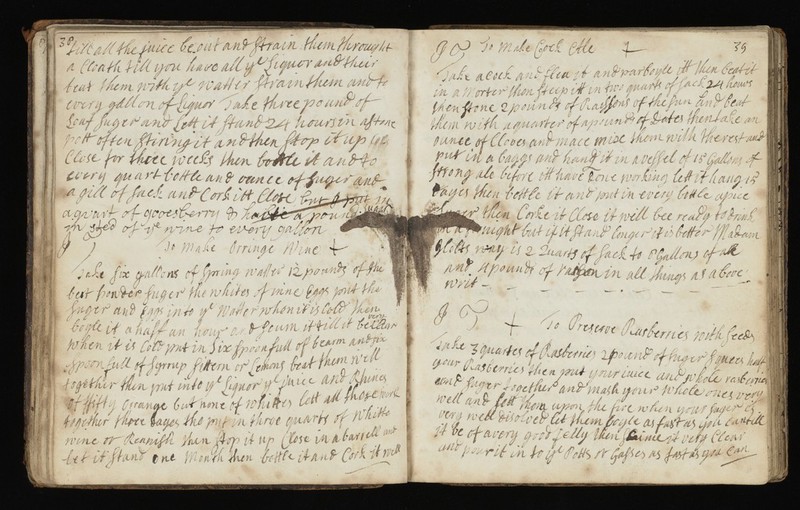 38
till all the juice be out and strain them throught
a Cloath till you have all ye Liquor and their
beat them with ye watter strain them and to
every gallon of Liquor Take three pound of
Loaf Suger and Lett it Stand 24 hours in a stone
pott often stiring it and then stop it up
Close for three weeks then bottle it and to
every quart bottle and ounce of Suger and
a gill of Sack and Cork itt Close but I put in
a quart of gooesberry & a pound
in sted of ye wine to every gallon
To Make Orringe Wine
Take six gallons of Spring watter 12 pounds of the
best ponder Suger the whites of nine Eggs put the
Suger and Eggs into ye Watter when it is Cold then
boyle it a half an hour and Scum it till it be very Clear
when it is Cold put in Six Spoonfull of bearm and six
Spoonfull of Syrrup Sittern or Lemons beat them well
together then put into ye Liquor ye Juice and Rhines
of fifty Orrange but none of whittes Lett all these work
together three dayes the put in three quarts of Whitte
wine or Reanish then stop it up Close in a barrell and
let it stand one Month then bottle it and Cork it well
39
To Make Cock Ale
Take a Cock and flea it and parboyle itt then beat it
in a Morter then steep itt in two quarts of Sack 24 hours
then stone 2 pounds of Rassons of the sun and beat
them with a quarter of a pound of dates then take an
ounce of Cloves and mace mixe them with the rest and
put in a bagg and hang it in a vessel of 15 Gallons of
strong ale before itt have done working lett it hang 15
dayes then bottle it and put in every bottle a peice
of then Corke it Close it will bee ready to drink
in a fortnight but if it stand longer it is better Madam
way is 2 Quarts of Sack to 8 Gallons of ale
and 4 pounds of in all things as above
writ
To Preserve Rasberries with seeds
Take 3 quartes of Rasberries 2 pound of Suger squees half
your Rasberries then put your juice and whole rasberries
and Suger together and mash your whole ones very
well and sett them upon the fire when your Suger is
very well disolved let them boyle as fast as you can till
it be of a very good Jelly then scime it very Clear
and pour it in to ye Potts or Glasses as fast as you Can